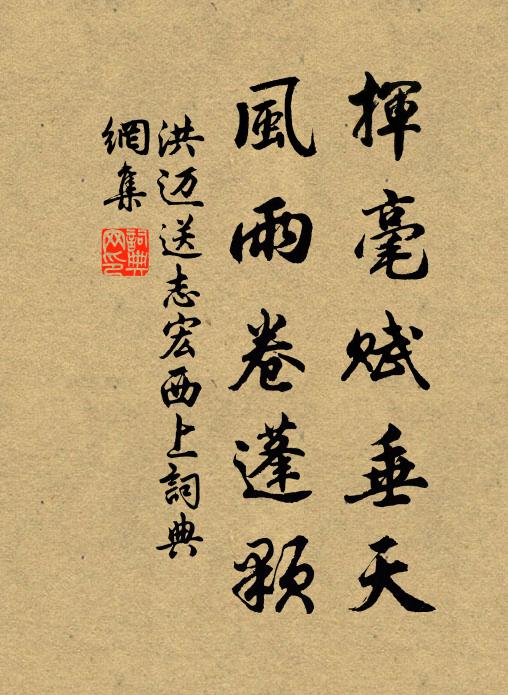 揮毫賦垂天
風雨卷蓬顆
洪迈送志宏西上詞典
網集
詞典網印